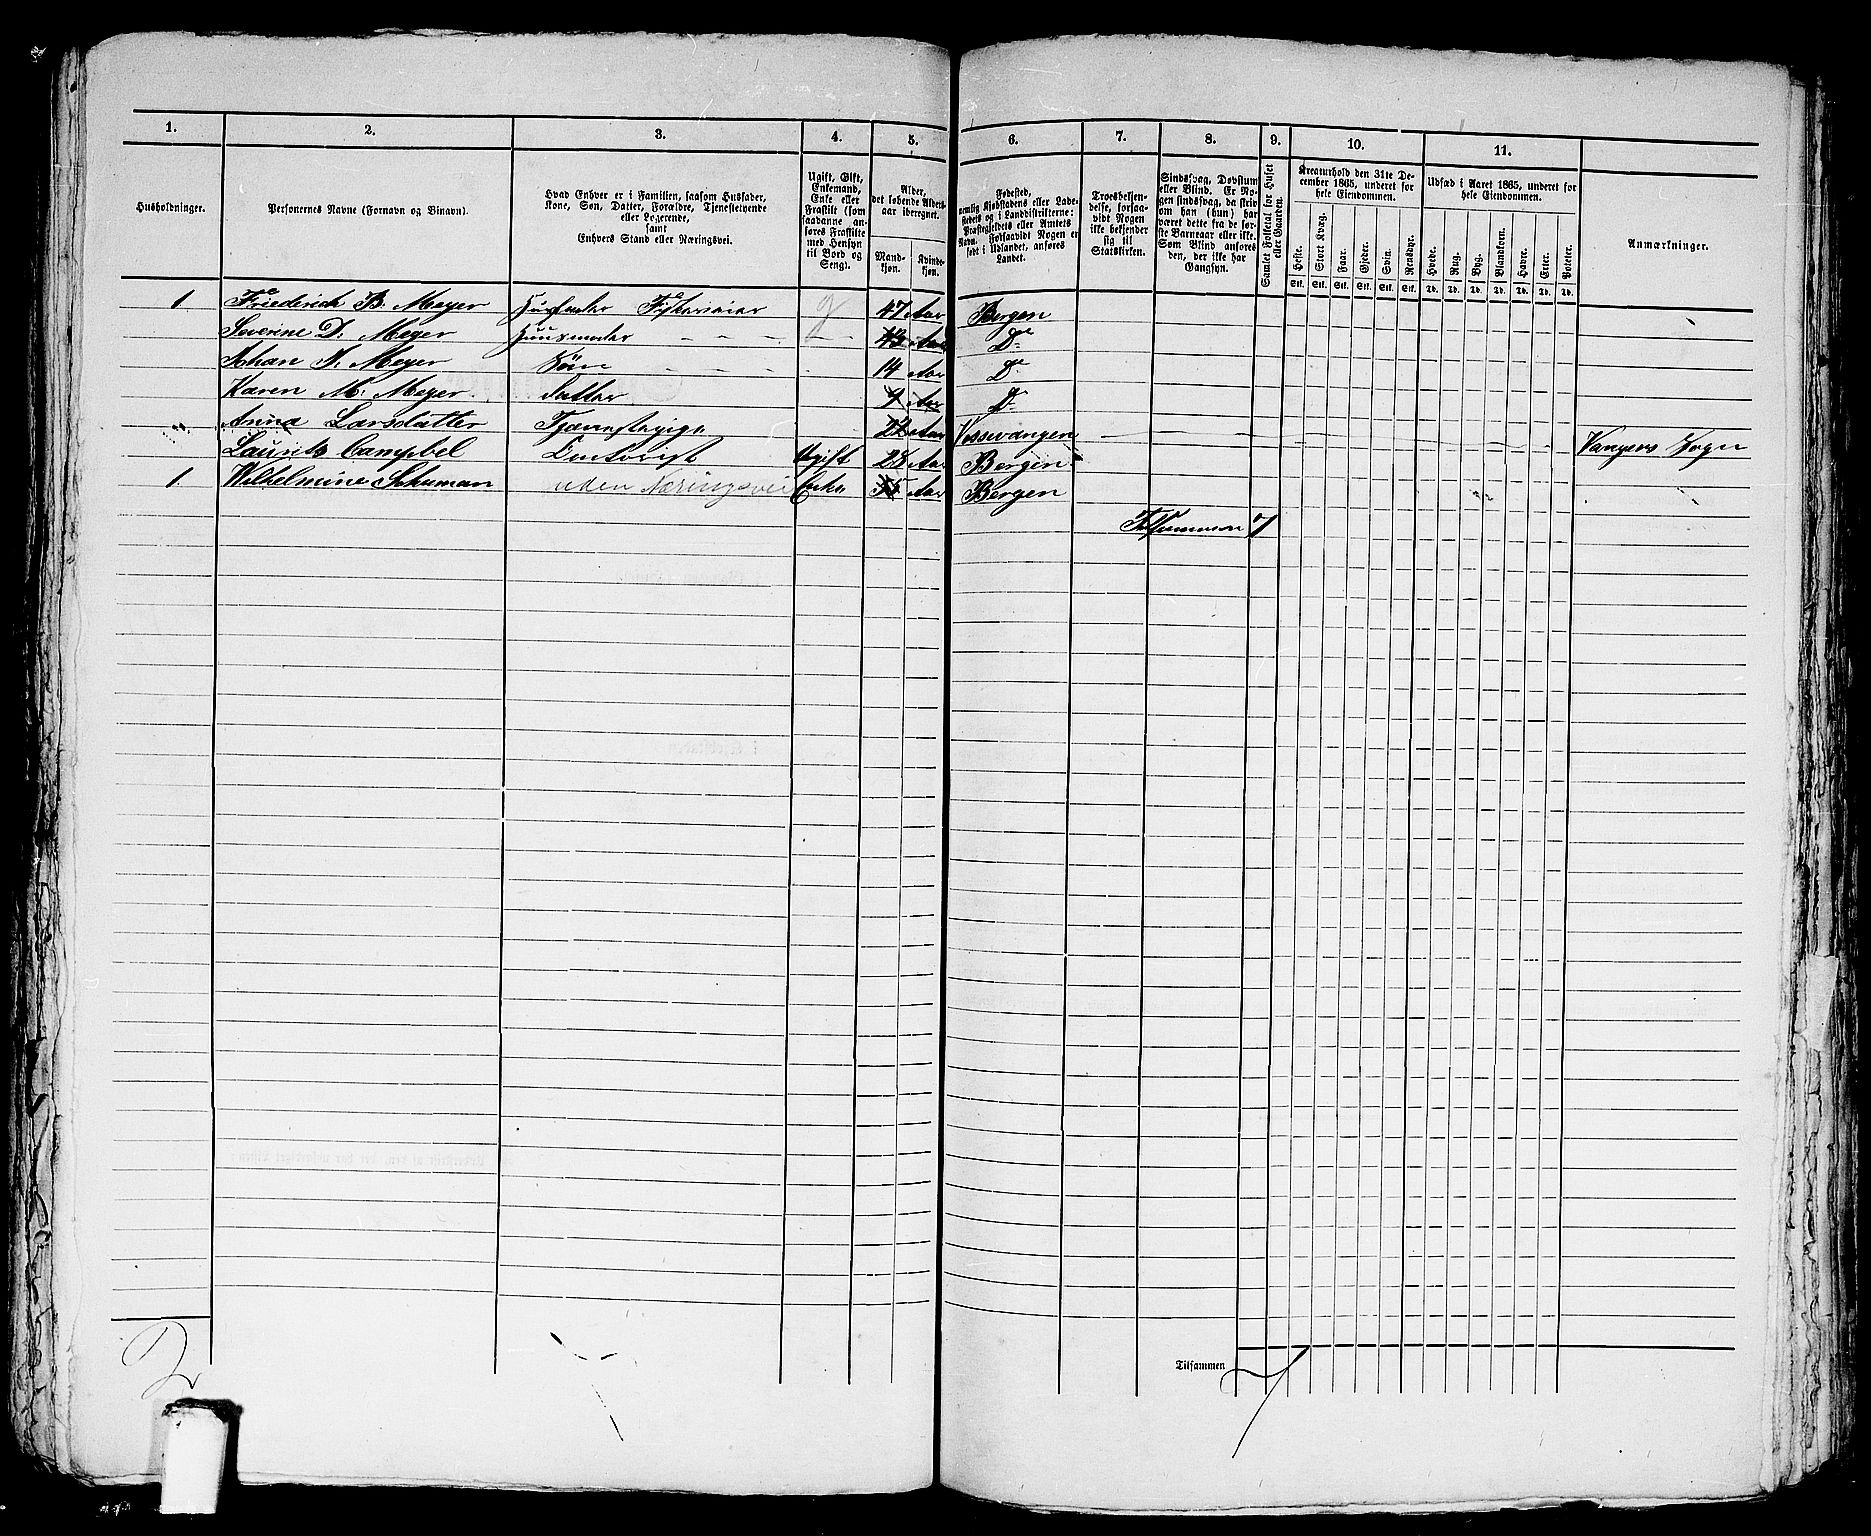 1. 2. 3. 4. 5. 6. 7. 8. 9. 10. 11.
Husholdninger.
Personernes Navne (Fornavn og Binavn).
Hvad Enhver er i Familien, saasom Husfader,
Kone, Søn, Datter, Forældre, Tjenestetyende
eller Logerende,
samt
Enhvers Stand eller Næringsvei.
Ugift, Gift,
Enkemand,
Enke eller
Fraskilt (som
saadanne an-
føres Fraskilte
med Hensyn
til Bord og
Seng).
Alder,
det løbende Alders-
aar iberegnet.
Mand-
kjøn.
Kvinde-
kjøn.
Fødested,
nemlig Kjøbstadens eller Lade-
stedets og i Landdistrikterne:
Præstegjeldets eller Amtets
Navn. Forsaavidt Nogen er
født i Udlandet, anføres
Landet.
Troesbekjen-
delse, forsaa-
vidt Nogen
ikke bekjender
sig til
Statskirken.
Sindssvag, Døvstum
eller Blind. Er No-
gen sindssvag, da skriv
om han (hun) har
været dette fra de før-
ste Barneaar eller ikke.
Som Blind anføres
den, der ikke har
Gangsyn.
Samlet Folketal for Huset
eller Gaarden.
Kreaturhold den 31te De-
cember 1865, underet for
hele Eiendommen.
Heste.
Stort Kvæg.
Faar.
Gjeder.
Svin.
Rensdyr.
Stk. Stk. Stk. Stk. Stk. Stk.
Udsæd i Aaret 1865, underet for
hele Eiendommen.
Hvede.
Rug.
Byg.
Blandkorn.
Havre.
Erter.
Poteter.
Td. Td. Td. Td. Td. Td. Td.
Anmærkninger.
1 Friederich B. Meyer Huusfader g 47 Aar Bergen
Severine D. Meyer Huusmoder 43 Aar Do
Johan F. Meyer Søn 14 Aar Do
Karen M. Meyer Datter 9 Aar Do
" Anna Larsdatter Tjenestepige 22 Aar Vossevangen Vangens Sogn
Laurits Campbel Ugift 28 Aar Bergen
1 Wilhelmine Schuman uden Næringsvei Enke Aar Bergen
Tilsammen 7
2
Tilsammen 7